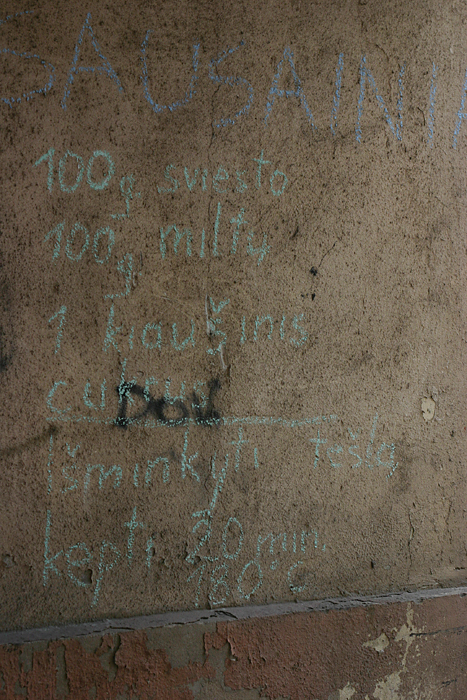 SAUSAINIAI
100g sviesto
100g miltų
1 kiaušinis
cukrus
Išminkyti tešlą
kepti 20 min.
180°C